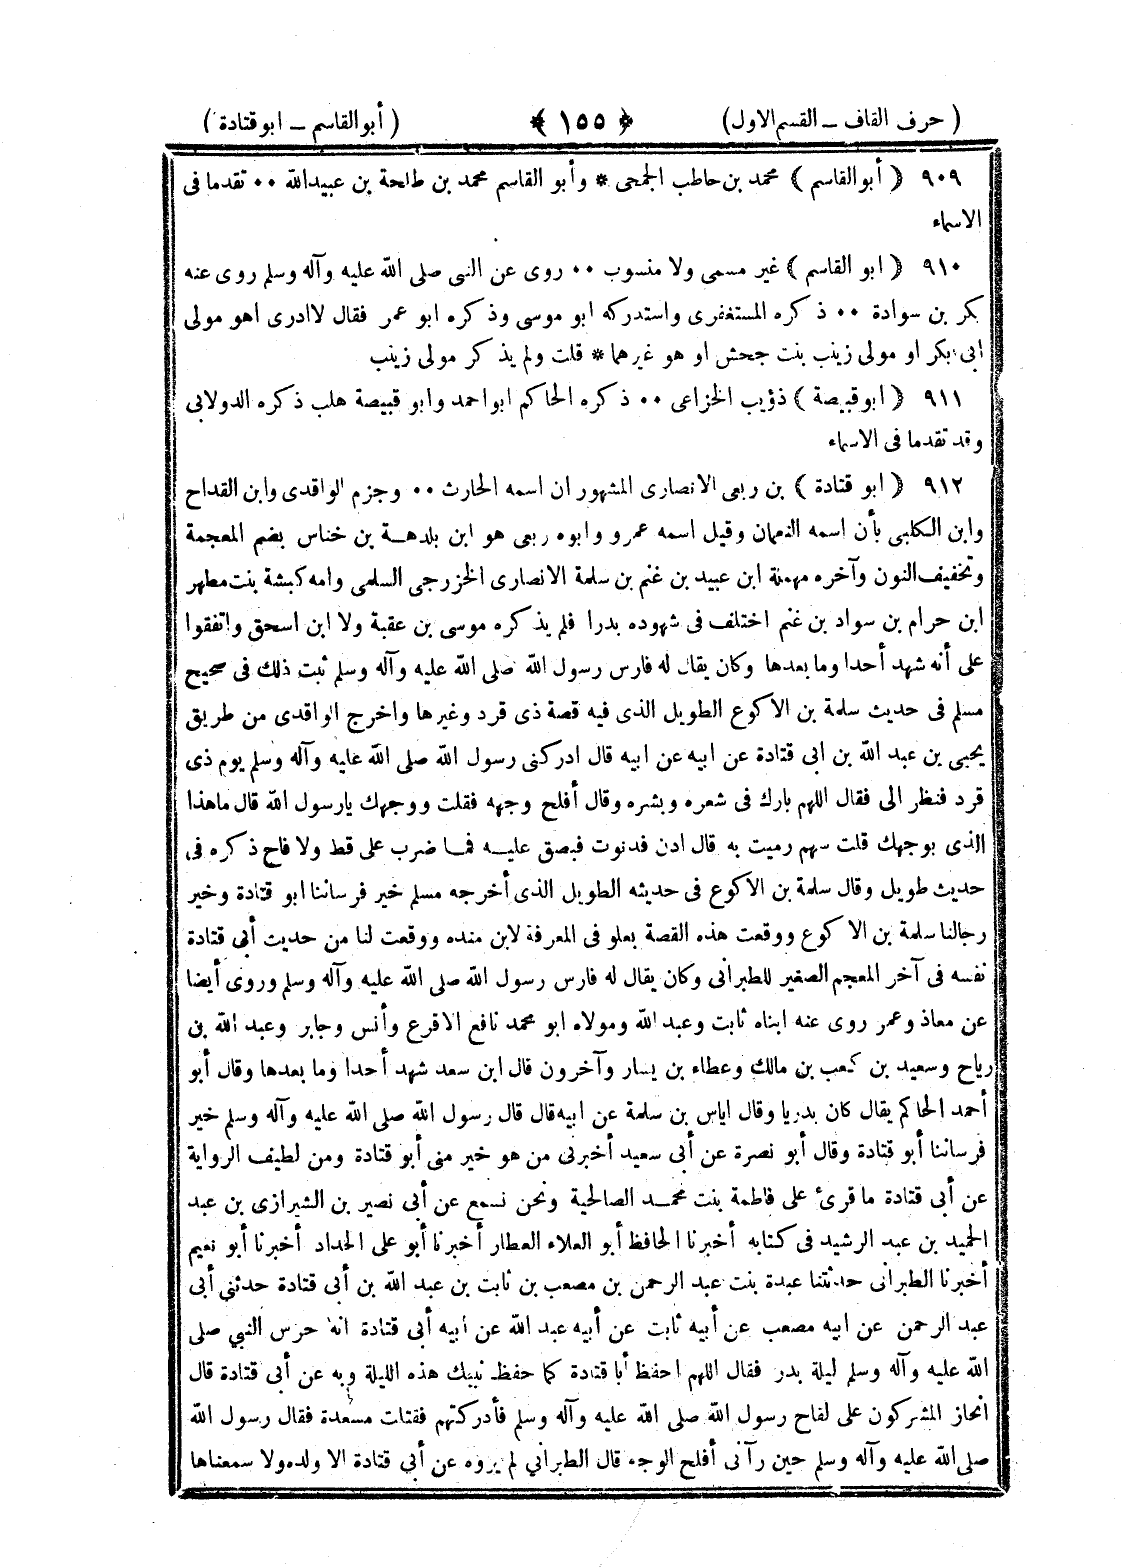 ( حرف القاف ــ القسم الاول ) ﴿ ١٥٥ ﴾ ( أبو القاسم ــ ابو قتادة )
٩٠٩ ﴿ أبو القاسم ﴾ محمد بن حاطب الجمحى * وأبو القاسم محمد بن طلحة بن عبيدالله ٠٠ تقدما فى
الاسماء
٩١٠ ﴿ ابو القاسم ﴾ غير مسمى ولا منسوب ٠٠ روى عن النبى صلى الله عليه وآله وسلم روى عنه
بكر بن سوادة ٠٠ ذكره المستغفرى واستدركه ابو موسى وذكره ابو عمر فقال لاادرى اهو مولى
ابى بكر او مولى زينب بنت جحش او هو غيرهما * قلت ولم يذكر مولى زينب
٩١١ ﴿ ابو قبيصة ﴾ ذؤيب الخزاعى ٠٠ ذكره الحاكم ابواحمد وابو قبيصة هلب ذكره الدولابى
وقد تقدما فى الاسماء
٩١٢ ﴿ ابو قتادة ﴾ بن ربعى الانصارى المشهور ان اسمه الحارث ٠٠ وجزم الواقدى وابن القداح
وابن الكلبى بأن اسمه النعمان وقيل اسمه عمرو وابوه ربعى هو ابن بلدهة بن خناس بضم المعجمة
وتخفيف النون وآخره مهملة ابن عبيد بن غنم بن سلمة الانصارى الخزرجى السلمى وامه كبشة بنت مطهر
ابن حرام بن سواد بن غنم اختلف فى شهوده بدرا فلم يذكره موسى بن عقبة ولا ابن اسحق واتفقوا
على أنه شهد أحدا وما بعدها وكان يقال له فارس رسول الله صلى الله عليه وآله وسلم ثبت ذلك فى صحيح
مسلم فى حديث سلمة بن الاكوع الطويل الذى فيه قصة ذى قرد وغيرها واخرج الواقدى من طريق
يحيى بن عبد الله بن ابى قتادة عن ابيه عن ابيه قال ادركنى رسول الله صلى الله عليه وآله وسلم يوم ذى
قرد فنظر الى فقال اللهم بارك فى شعره وبشره وقال أفلح وجهه فقلت ووجهك يارسول الله قال ماهذا
الذى بوجهك قلت سهم رميت به قال ادن فدنوت فبصق عليه فما ضرب على قط ولا فاح ذكره فى
حديث طويل وقال سلمة بن الاكوع فى حديثه الطويل الذى أخرجه مسلم خير فرساننا ابو قتادة وخير
رجالنا سلمة بن الاكوع ووقعت هذه القصة بعلو فى المعرفة لابن منده ووقعت لنا من حديث أبى قتادة
نفسه فى آخر المعجم الصغير للطبرانى وكان يقال له فارس رسول الله صلى الله عليه وآله وسلم وروى أيضا
عن معاذ وعمر روى عنه ابناه ثابت وعبد الله ومولاه ابو محمد نافع الاقرع وأنس وجابر وعبد الله بن
رباح وسعيد بن كعب بن مالك وعطاء بن يسار وآخرون قال ابن سعد شهد أحدا وما بعدها وقال أبو
أحمد الحاكم يقال كان بدريا وقال اياس بن سلمة عن ابيه قال قال رسول الله صلى الله عليه وآله وسلم خير
فرساننا أبو قتادة وقال أبو نصرة عن أبى سعيد أخبرنى من هو خير منى أبو قتادة ومن لطيف الرواية
عن أبى قتادة ما قرئ على فاطمة بنت محمد الصالحية ونحن نسمع عن أبى نصير بن الشيرازى بن عبد
الحميد بن عبد الرشيد فى كتابه أخبرنا الحافظ أبو العلاء العطار أخبرنا أبو على الحداد أخبرنا أبو نعيم
أخبرنا الطبرانى حدثتنا عبدة بنت عبد الرحمن بن مصعب بن ثابت بن عبد الله بن أبى قتادة حدثنى أبى
عبد الرحمن عن ابيه مصعب عن أبيه ثابت عن أبيه عبد الله عن أبيه أبى قتادة انه حرس النبي صلى
الله عليه وآله وسلم ليلة بدر فقال اللهم احفظ أبا قتادة كما حفظ نبيك هذه الليلة وبه عن أبى قتادة قال
انحاز المشركون على لقاح رسول الله صلى الله عليه وآله وسلم فأدركتهم فقتلت مسعدة فقال رسول الله
صلى الله عليه وآله وسلم حين رآنى أفلح الوجه قال الطبراني لم يروه عن أبي قتادة الا ولده ولا سمعناها